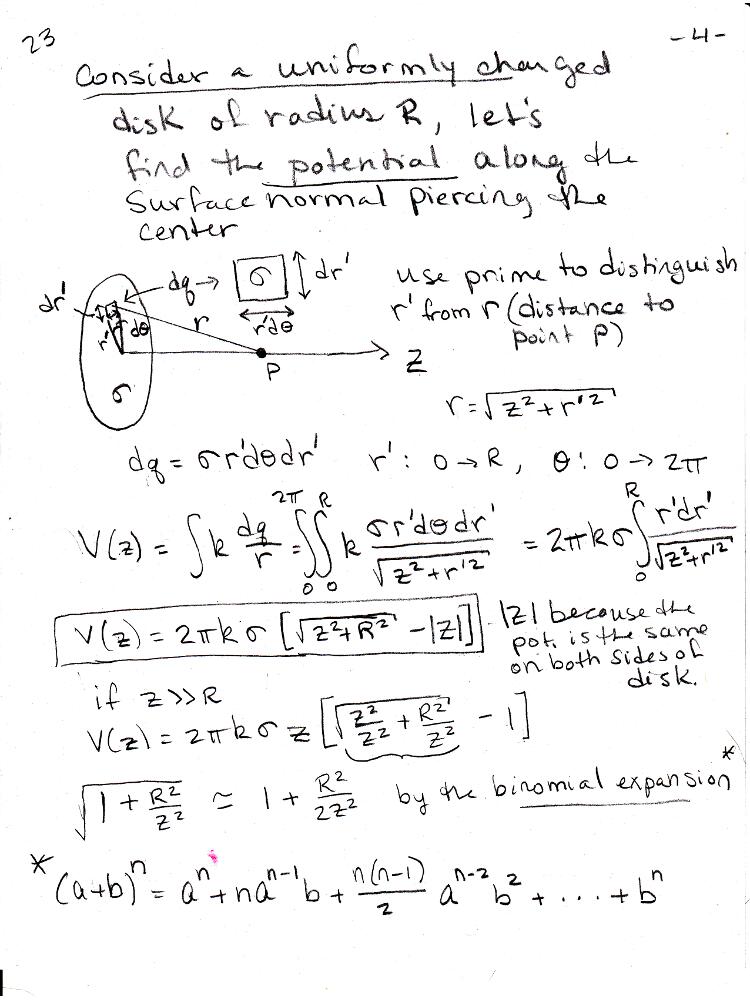 23
-4-
Consider a uniformly charged
disk of radius R, let's
find the potential along the
surface normal piercing the
center
dr' dq → σ dr' r'dθ
r' dθ r P Z σ
use prime to distinguish
r' from r (distance to
point P)
r = √(z² + r'²)
dq = σr'dθdr' r': 0→R, θ: 0→2π
V(z) = ∫k dq/r = ∫₀^2π ∫₀^R k σr'dθdr'/√(z²+r'²) = 2πkσ ∫₀^R r'dr'/√(z²+r'²)
V(z) = 2πkσ [√(z²+R²) - |z|]
|z| because the
pot. is the same
on both sides of
disk.
if z>>R
V(z) = 2πkσ z [√(z²/z² + R²/z²) - 1]
√(1 + R²/z²) ≃ 1 + R²/2z² by the binomial expansion*
* (a+b)ⁿ = aⁿ + naⁿ⁻¹b + n(n-1)/2 aⁿ⁻²b² + ... + bⁿ